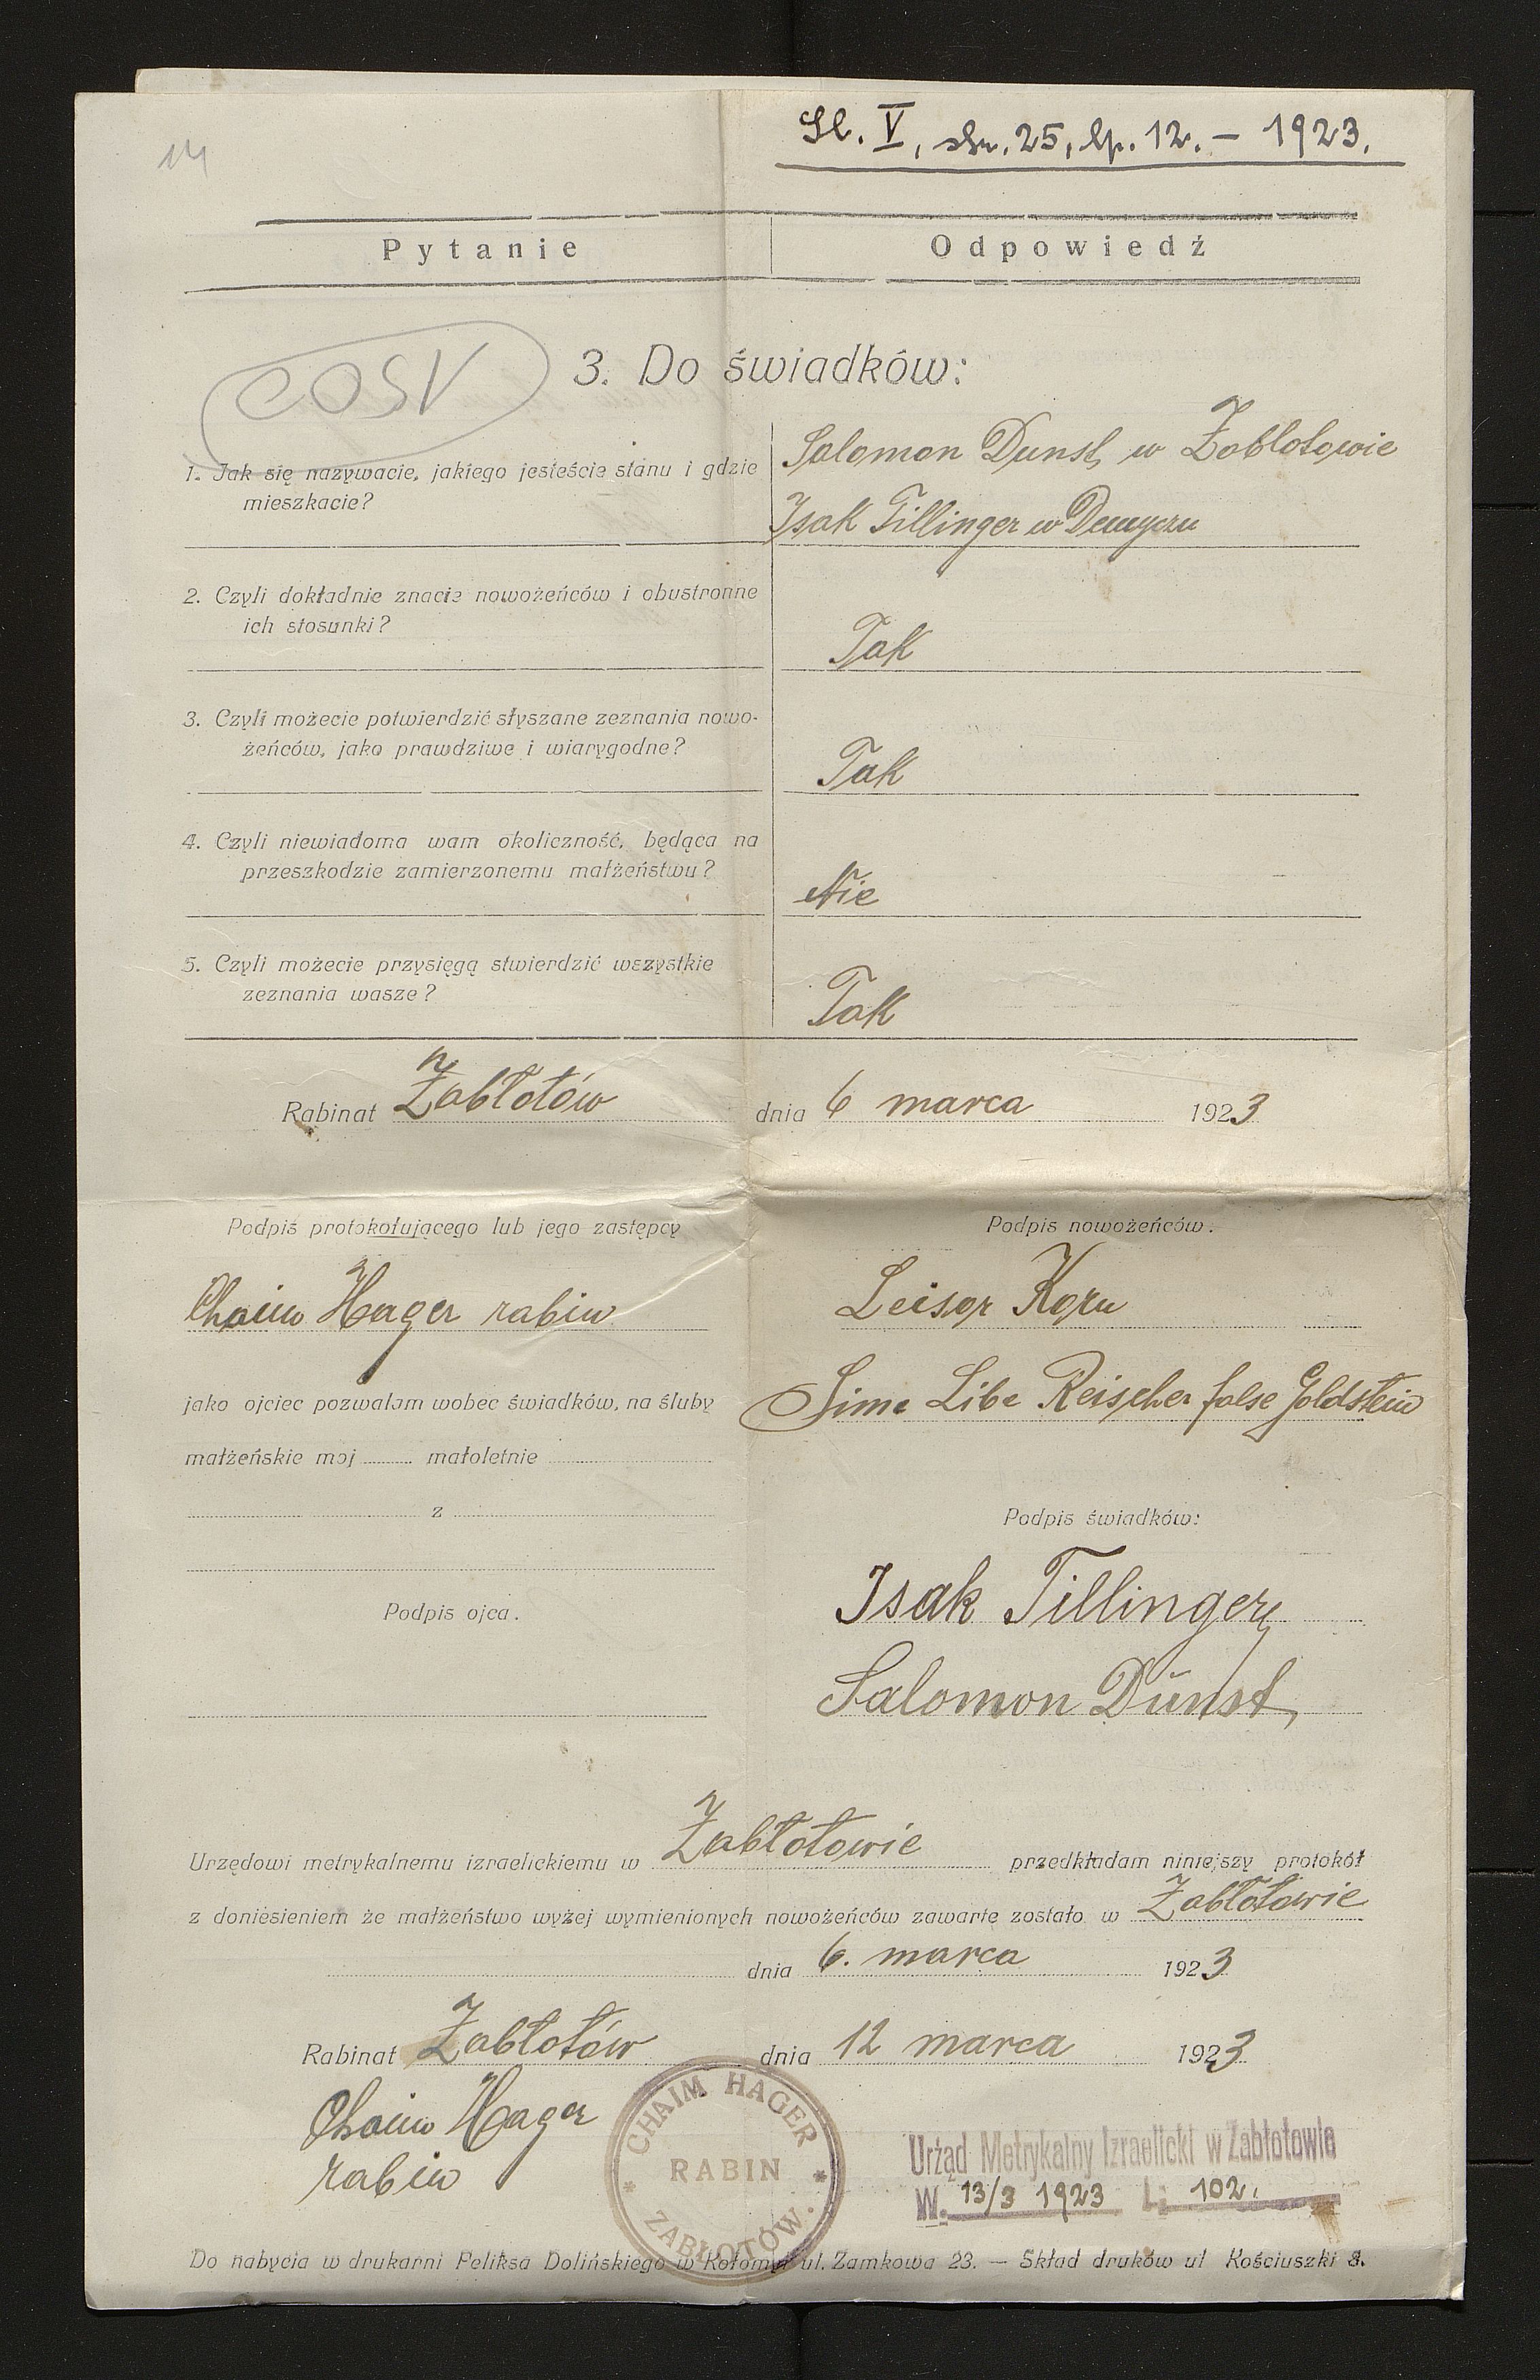 14
Sl. V, str. 25, lp. 12. – 1923.
Pytanie
Odpowiedź
COSV
3. Do świadków:
1. Jak się nazywacie, jakiego jesteście stanu i gdzie
mieszkacie?
Salomon Dunst w Zabłotowie
Isak Tillinger w Demyczu
2. Czyli dokładnie znacie nowożeńców i obustronne
ich stosunki?
Tak
3. Czyli możecie potwierdzić słyszane zeznania nowo-
żeńców, jako prawdziwe i wiarygodne?
Tak
4. Czyli niewiadoma wam okoliczność, będąca na
przeszkodzie zamierzonemu małżeństwu?
Nie
5. Czyli możecie przysięgą stwierdzić wszystkie
zeznania wasze?
Tak
Rabinat Zabłotów dnia 6 marca 1923
Podpis protokołującego lub jego zastępcy
Podpis nowożeńców.
Chaim Hager rabin
Leisor Korn
jako ojciec pozwalam wobec świadków, na śluby
Sime Libe Reischer false Goldstein
małżeńskie moj małoletnie
z
Podpis świadków:
Isak Tillinger
Podpis ojca.
Salomon Dunst
Urzędowi metrykalnemu izraelickiemu w Zabłotowie przedkładam niniejszy protokół
z doniesieniem że małżeństwo wyżej wymienionych nowożeńców zawarte zostało w Zabłotowie
dnia 6. marca 1923
Rabinat Zabłotów dnia 12 marca 1923
Chaim Hager
rabin
CHAIM HAGER
RABIN
ZABŁOTÓW.
Urząd Metrykalny Izraelicki w Zabłotowie
W. 13/3 1923 L: 102.
Do nabycia w drukarni Feliksa Dolińskiego w Kołomyi ul. Zamkowa 23. — Skład druków ul Kościuszki 8.